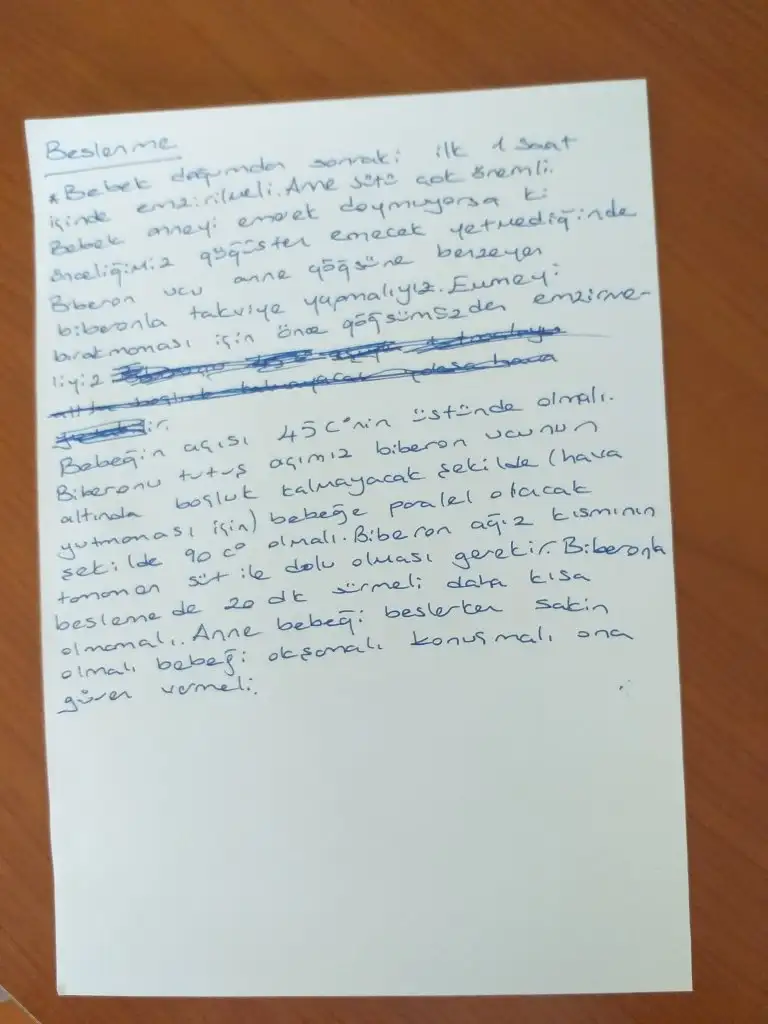 Beslenme
* Bebek doğumdan sonraki ilk 1 saat
içinde emzirilmeli. Anne sütü çok önemli.
Bebek anneyi emerek doymuyorsa ki
önceliğimiz göğüsten emecek yetmediğinde
Biberon ucu anne göğsüne benzeyen
biberonla takviye yapmalıyız. Emmeyi
bırakmaması için önce göğsümüzden emzirme-
liyiz
Bebeğin açısı 45 C°'nin üstünde olmalı.
Biberonu tutuş açımız biberon ucunun
altında boşluk kalmayacak şekilde (hava
yutmaması için) bebeğe paralel olacak
şekilde 90 C° olmalı. Biberon ağız kısmının
tamamen süt ile dolu olması gerekir. Biberonla
besleme de 20 dk sürmeli daha kısa
olmamalı. Anne bebeği beslerken sakin
olmalı bebeği okşamalı konuşmalı ona
güven vermeli.